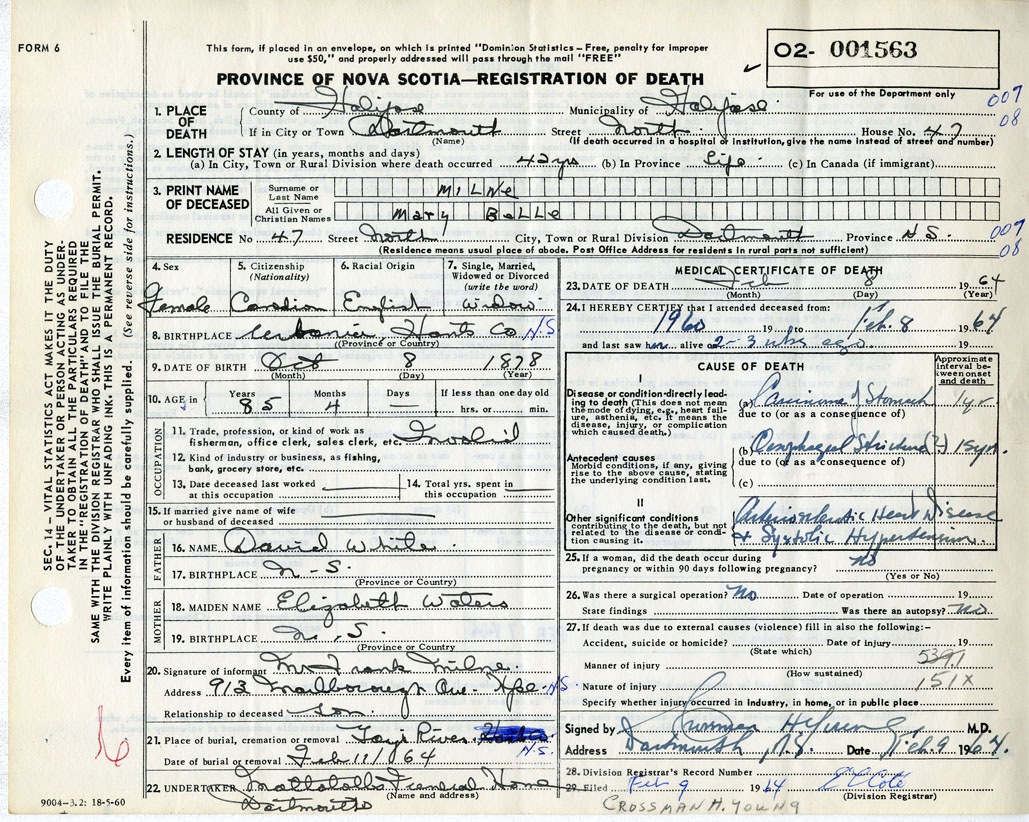 FORM 6
This form, if placed in an envelope, on which is printed "Dominion Statistics – Free, penalty for improper
use $50," and properly addressed will pass through the mail "FREE"
PROVINCE OF NOVA SCOTIA—REGISTRATION OF DEATH
O2- 001563
For use of the Department only
007
08
1. PLACE OF DEATH
County of Halifax Municipality of Halifax
If in City or Town Dartmouth Street North House No. 47
(Name) (If death occurred in a hospital or institution, give the name instead of street and number)
2. LENGTH OF STAY (in years, months and days)
(a) In City, Town or Rural Division where death occurred 4 yrs (b) In Province Life (c) In Canada (if immigrant)
3. PRINT NAME OF DECEASED
Surname or Last Name MILNE
All Given or Christian Names Mary Belle
RESIDENCE No. 47 Street North City, Town or Rural Division Dartmouth Province N.S.
007
08
(Residence means usual place of abode. Post Office Address for residents in rural parts not sufficient)
4. Sex
Female
5. Citizenship (Nationality)
Canadian
6. Racial Origin
English
7. Single, Married, Widowed or Divorced (write the word)
Widow
8. BIRTHPLACE Urbania Hants Co N.S.
(Province or Country)
9. DATE OF BIRTH Oct 8 1878
(Month) (Day) (Year)
10. AGE in Years 85 Months 4 Days — If less than one day old
hrs. or min.
OCCUPATION
11. Trade, profession, or kind of work as
fisherman, office clerk, sales clerk, etc.
12. Kind of industry or business, as fishing,
bank, grocery store, etc.
13. Date deceased last worked
at this occupation
14. Total yrs. spent in
this occupation
15. If married give name of wife
or husband of deceased
FATHER
16. NAME David White
17. BIRTHPLACE N-S.
(Province or Country)
MOTHER
18. MAIDEN NAME Elizabeth Waters
19. BIRTHPLACE N.S.
(Province or Country
20. Signature of informant Mr Frank Milne
Address 913 Marlborough Ave. Hfx N.S.
Relationship to deceased Son
21. Place of burial, cremation or removal River N.S.
Date of burial or removal Feb 11/64
22. UNDERTAKER Mattatalls Funeral Home
(Name and address)
Dartmouth
9004-3.2: 18-5-60
MEDICAL CERTIFICATE OF DEATH
23. DATE OF DEATH Feb 8 1964
(Month) (Day) (Year)
24. I HEREBY CERTIFY that I attended deceased from:
1960 19 to Feb. 8 1964
and last saw her alive on 2-3 wks ago 19
CAUSE OF DEATH
Approximate interval between onset and death
I
Disease or condition directly leading to death (This does not mean the mode of dying, e.g., heart failure, asthenia, etc. It means the disease, injury, or complication which caused death.)
(a) Carcinoma of Stomach 1 yr
due to (or as a consequence of)
Antecedent causes
Morbid conditions, if any, giving rise to the above cause, stating the underlying condition last.
(b) (?) 15 yrs.
due to (or as a consequence of)
(c)
II
Other significant conditions
contributing to the death, but not related to the disease or condition causing it.
Arteriosclerotic Heart Disease
& Systolic Hypertension
25. If a woman, did the death occur during
pregnancy or within 90 days following pregnancy? no
(Yes or No)
26. Was there a surgical operation? No Date of operation 19
State findings Was there an autopsy? no
27. If death was due to external causes (violence) fill in also the following:-
Accident, suicide or homicide? Date of injury 19
(State which)
Manner of injury 539.1
(How sustained)
Nature of injury 151X
Specify whether injury occurred in industry, in home, or in public place
Signed by M.D.
Address Dartmouth, N.S. Date Feb. 9 1964
28. Division Registrar's Record Number
29. Filed Feb 9 1964
(Division Registrar)
CROSSMAN H. YOUNG
SEC. 14 – VITAL STATISTICS ACT MAKES IT THE DUTY
OF THE UNDERTAKER OR PERSON ACTING AS UNDER-
TAKER TO OBTAIN ALL THE PARTICULARS REQUIRED
IN THE "REGISTRATION OF DEATH" AND TO FILE THE
SAME WITH THE DIVISION REGISTRAR WHO SHALL ISSUE THE BURIAL PERMIT.
WRITE PLAINLY WITH UNFADING INK. THIS IS A PERMANENT RECORD.
Every item of information should be carefully supplied. (See reverse side for instructions.)